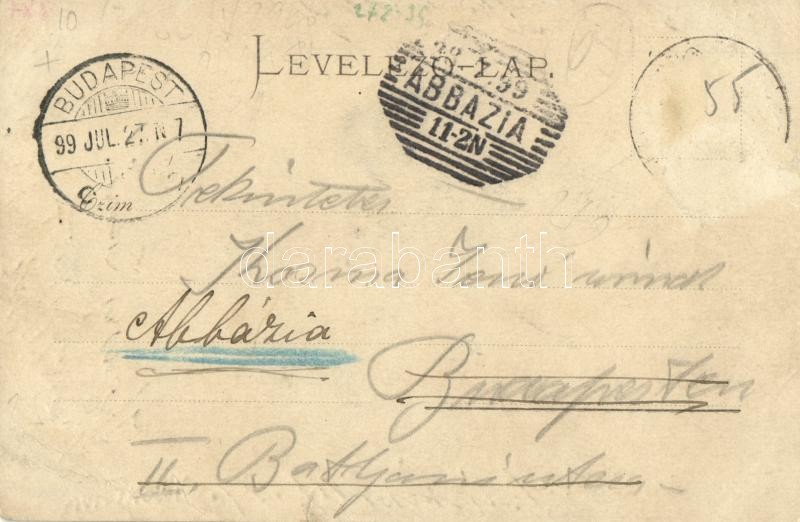 10
272-35
LEVELEZŐ-LAP.
BUDAPEST
99 JUL. 27. N 7
.99
ABBAZIA
11-2N
55
Czim
Tekintetes
darabanth
Kozma Jenő úrnak
Abbázia
Budapesten
II. Batthyani utca